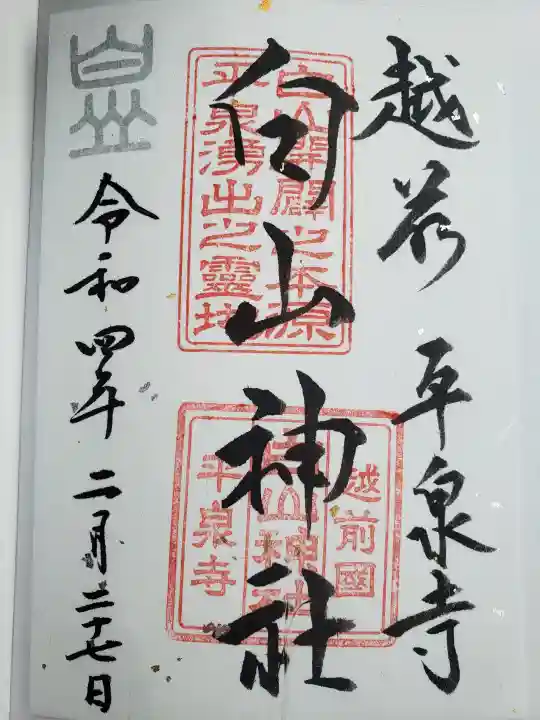 越前 平泉寺
白山神社
白山開闢之本源
平泉湧出之靈地
越前國
白山神社
平泉寺
令和四年二月二十七日